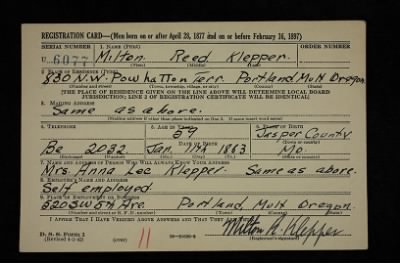 REGISTRATION CARD—(Men born on or after April 28, 1877 and on or before February 16, 1897)
SERIAL NUMBER 1. NAME (Print) ORDER NUMBER
U 6077 Milton Reed Klepper
(First) (Middle) (Last)
2. PLACE OF RESIDENCE (Print)
830 N.W. Powhatton Terr. Portland Mult Oregon
(Number and street) (Town, township, village, or city) (County) (State)
[THE PLACE OF RESIDENCE GIVEN ON THE LINE ABOVE WILL DETERMINE LOCAL BOARD
JURISDICTION; LINE 2 OF REGISTRATION CERTIFICATE WILL BE IDENTICAL]
3. MAILING ADDRESS
Same as above.
[Mailing address if other than place indicated on line 2. If same insert word same]
4. TELEPHONE 5. AGE IN YEARS 6. PLACE OF BIRTH
59 Jasper County
DATE OF BIRTH (Town or county)
Be 2032 Jan. 11th 1883 Mo.
(Exchange) (Number) (Mo.) (Day) (Yr.) (State or country)
7. NAME AND ADDRESS OF PERSON WHO WILL ALWAYS KNOW YOUR ADDRESS
Mrs. Anna Lee Klepper. Same as above.
8. EMPLOYER'S NAME AND ADDRESS
Self employed.
9. PLACE OF EMPLOYMENT OR BUSINESS
Portland, Mult Oregon.
(Number and street or R. F. D. number) (Town) (County) (State)
I AFFIRM THAT I HAVE VERIFIED ABOVE ANSWERS AND THAT THEY ARE TRUE.
D. S. S. Form 1
Milton R. Klepper
(Registrant's signature)
11